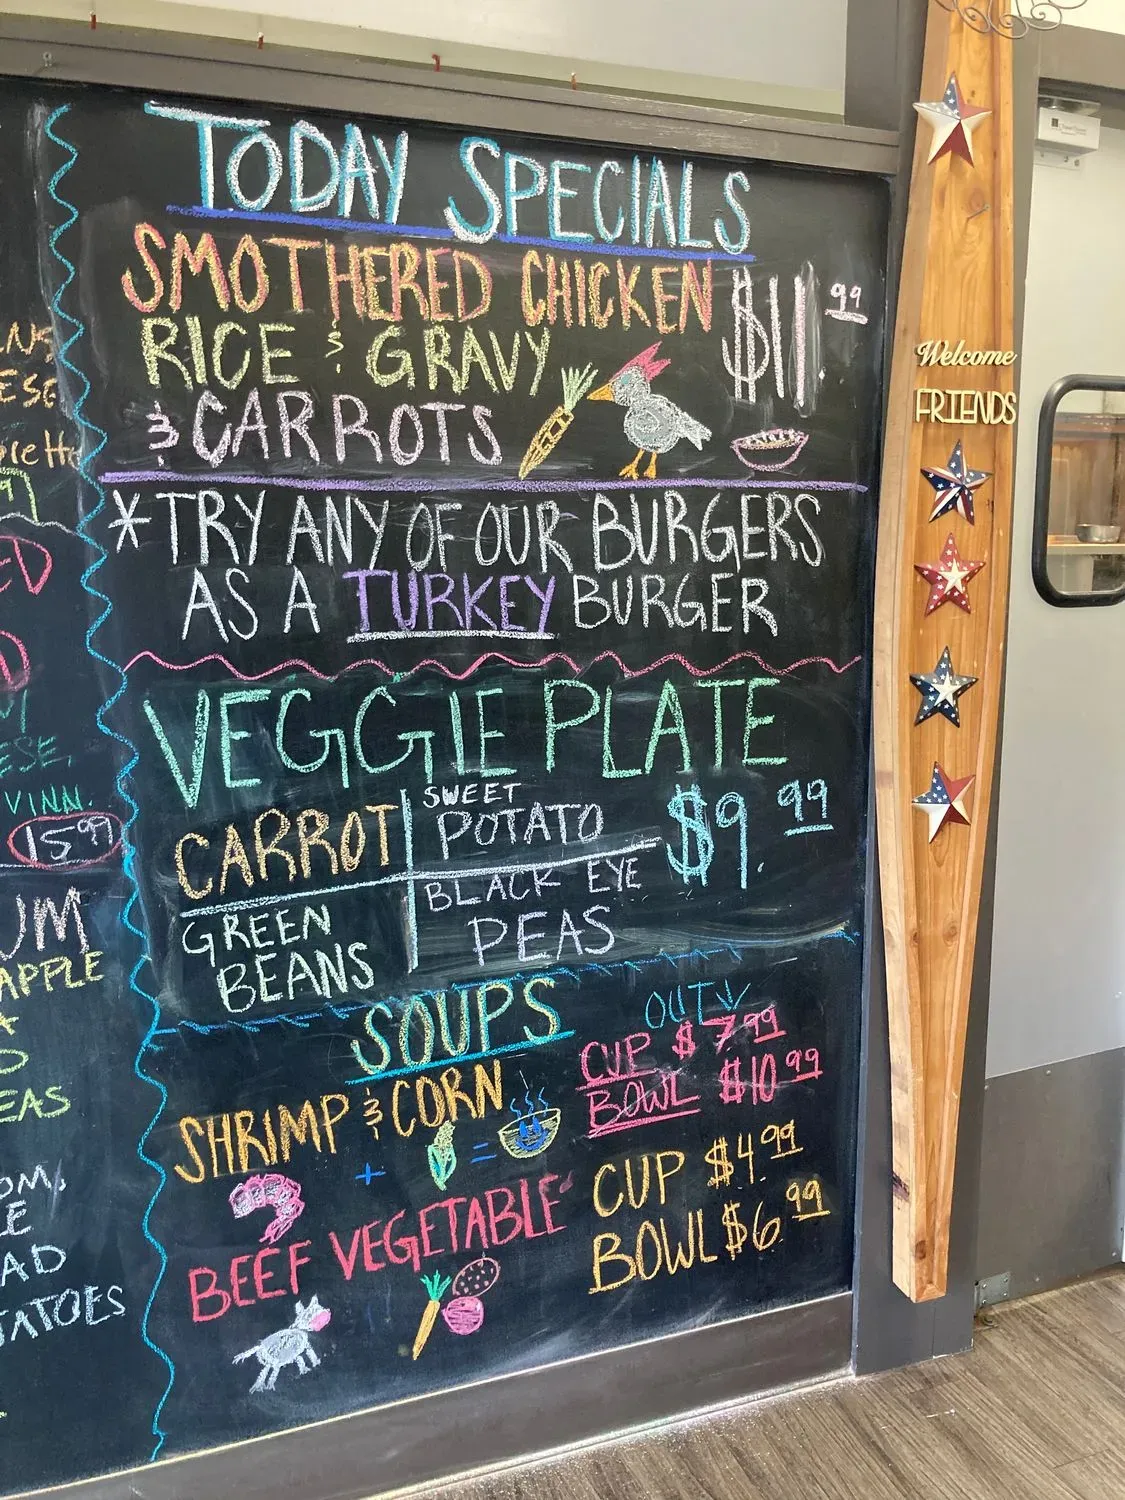 TODAY SPECIALS
SMOTHERED CHICKEN $11.99
RICE & GRAVY
& CARROTS
*TRY ANY OF OUR BURGERS
AS A TURKEY BURGER
VEGGIE PLATE
$9.99
CARROT
SWEET
POTATO
GREEN
BEANS
BLACK EYE
PEAS
SOUPS
OUT
SHRIMP & CORN
CUP $7.99
BOWL $10.99
+ =
BEEF VEGETABLE
CUP $4.99
BOWL $6.99
VINN.
15.99
APPLE
EAS
AD
Welcome
FRIENDS